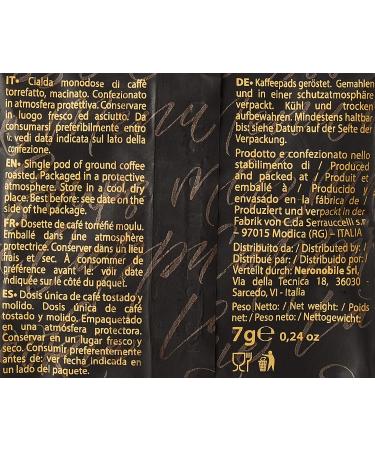 IT• Cialda monodose di caffè
torrefatto, macinato. Confezionato
in atmosfera protettiva. Conservare
in luogo fresco ed asciutto. Da
consumarsi preferibilmente entro
: vedi data indicata sul lato della
confezione.
EN• Single pod of ground coffee
roasted. Packaged in a protective
atmosphere. Store in a cool, dry
place. Best before: see date on the
side of the package.
FR• Dosette de café torréfié moulu.
Emballé dans une atmosphère
protectrice. Conserver dans un lieu
frais et sec. À consommer de
préférence avant le: voir date
indiquée sur le côté du paquet.
ES• Dosis única de café tostado y
molido. Dosis única de café
tostado y molido. Empaquetado
en una atmósfera protectora.
Conservar en un lugar fresco y
seco. Consumir preferentemente
antes de: ver fecha indicada en
un lado del paquete.
DE• Kaffeepads geröstet. Gemahlen
und in einer schutzatmosphäre
verpackt. Kühl und trocken
aufbewahren. Mindestens haltbar
bis: siehe Datum auf der Seite der
Verpackung.
Prodotto e confezionato nello
stabilimento di / Produced
and packed at / Produit et
emballé à / Producido y
envasado en la fábrica de /
Produziert und verpackt in der
Fabrik von C.da Serrauccelli s.n.
– 97015 Modica (RG) – ITALIA
Distribuito da: / Distributed by: /
Distribué par: / Distribuido por: /
Verteilt durch: Neronobile Srl,
Via della Tecnica 18, 36030 -
Sarcedo, VI - Italia
Peso Netto: / Net weight: / Poids
net: / Peso neto: / Nettogewicht:
7g e 0,24 oz